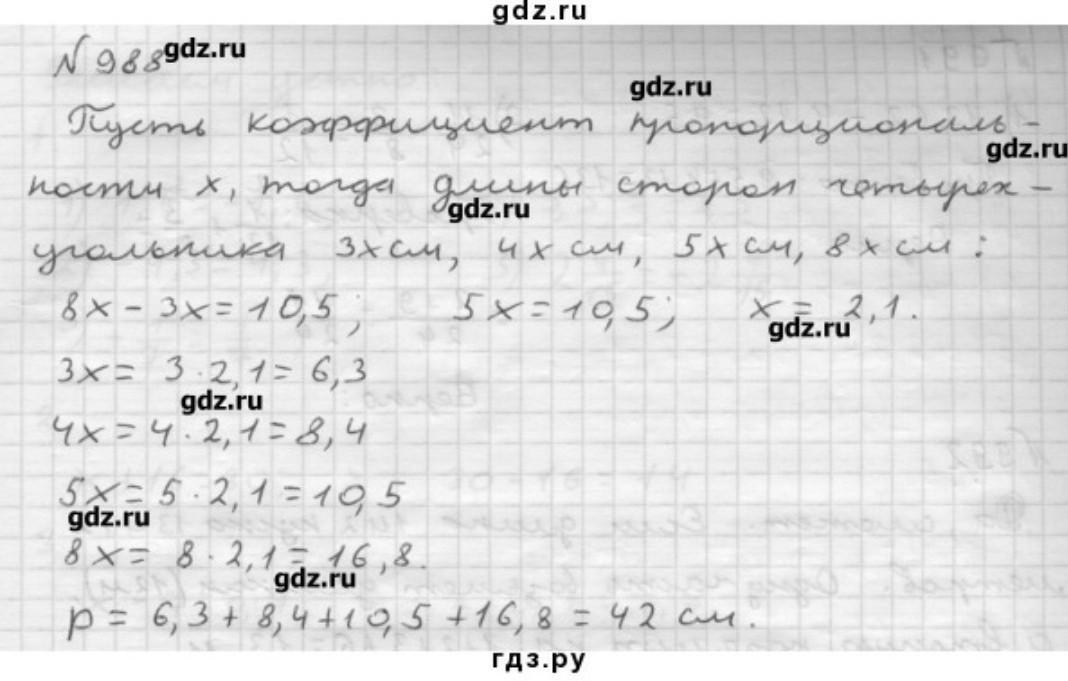 gdz.ru
№ 988 gdz.ru
gdz.ru
Пусть коэффициент пропорциональ-
gdz.ru
ности x, тогда длины сторон четырех-
gdz.ru
угольника 3x см, 4x см, 5x см, 8x см:
8x - 3x = 10,5; 5x = 10,5; x = 2,1.
gdz.ru
3x = 3·2,1 = 6,3
gdz.ru
4x = 4·2,1 = 8,4
5x = 5·2,1 = 10,5
gdz.ru
8x = 8·2,1 = 16,8.
gdz.ru
p = 6,3 + 8,4 + 10,5 + 16,8 = 42 см.
гдз.ру